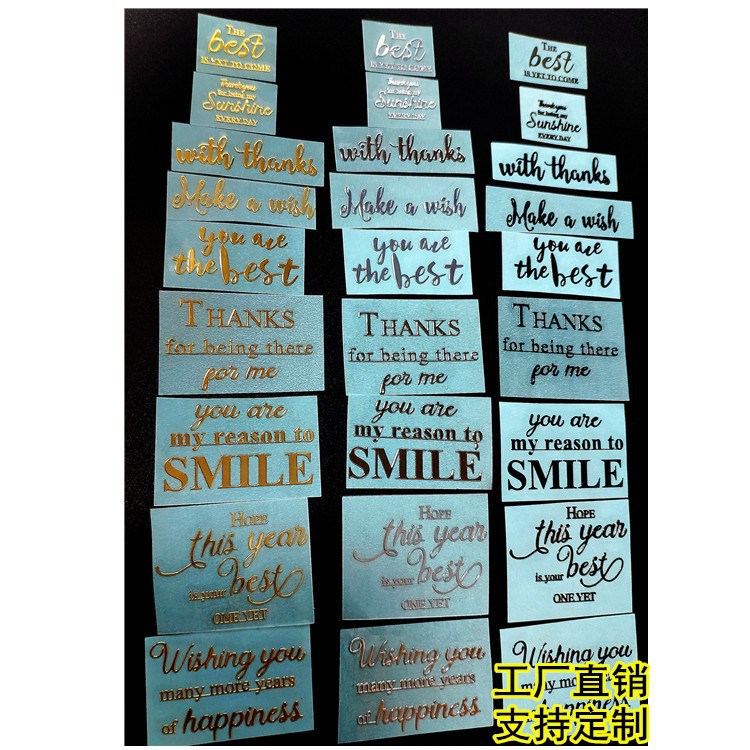 THE
best
IS YET TO COME
Thank you
for being my
Sunshine
EVERY DAY
with thanks
Make a wish
you are
the best
THANKS
for being there
for me
you are
my reason to
SMILE
HOPE
this year
is your best
ONE YET
Wishing you
many more years
of happiness
THE
best
IS YET TO COME
Thank you
for being my
Sunshine
EVERY DAY
with thanks
Make a wish
you are
the best
THANKS
for being there
for me
you are
my reason to
SMILE
HOPE
this year
is your best
ONE YET
Wishing you
many more years
of happiness
THE
best
IS YET TO COME
Thank you
for being my
Sunshine
EVERY DAY
with thanks
Make a wish
you are
the best
THANKS
for being there
for me
you are
my reason to
SMILE
HOPE
this year
is your best
ONE YET
Wishing you
many
工厂直销
支持定制